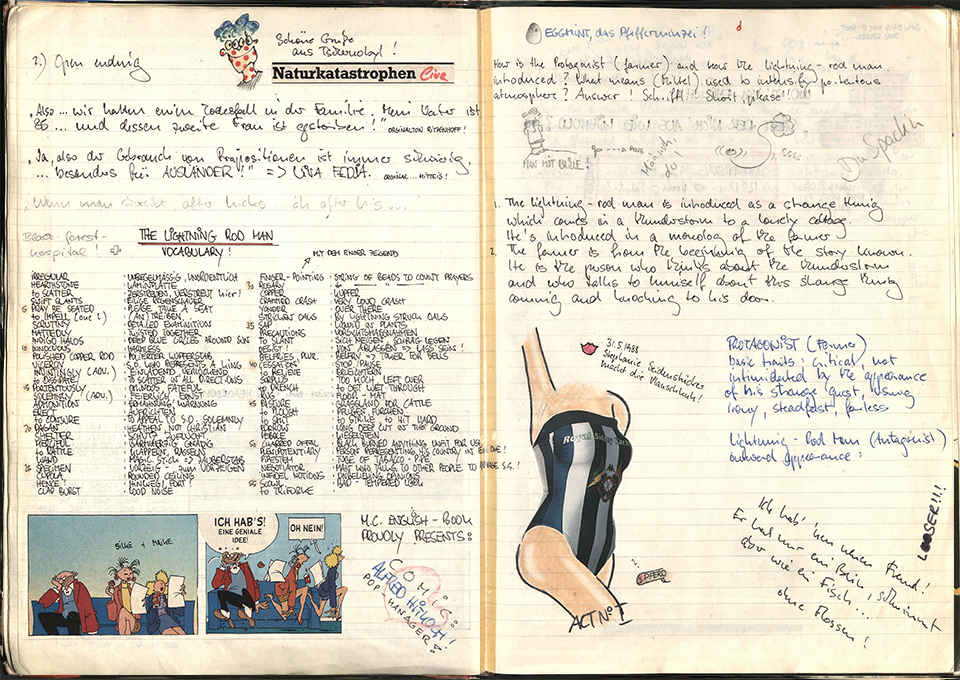 2.) Open ending
Schöne Grüße
aus Tschernobyl!
Naturkatastrophen Live
"Also ... wir hatten einen Todesfall in der Familie. Mein Vater ist
85 ... und dessen zweite Frau ist gestorben!"
"Ja, also der Gebrauch von Präpositionen ist immer schwierig,
... besonders für AUSLÄNDER!" => LINA FEDJA.
"Wenn man schreibt after hicks ... äh after his ..."
hospital!
THE LIGHTNING ROD MAN
VOCABULARY!
MIT DEM FINGER ZEIGEND
IRREGULAR : UNREGELMÄSSIG, UNORDENTLICH
HEARTHSTONE : KAMINPLATTE
to SCATTER : ZERSTREUEN, VERSTREUT hier!
SWIFT SLANTS
5 PRAY BE SEATED : PLEASE TAKE A SEAT
to IMPELL : (AN)TREIBEN
SCRUTINY : DETAILED EXAMINATION
MATTEDLY : TWISTED TOGETHER
INDIGO HALOS : DEEP BLUE CIRCLES AROUND SUN
10 INNOCUOUS : HARMLESS
POLISHED COPPER ROD : POLIERTER KUPFERSTAB
VICEROY : S.O. WHO REPRESENTS A KING
INVITINGLY (ADV.) : EINLADEND, VERLOCKEND
to DISSIPATE : TO SCATTER IN ALL DIRECTIONS
15 PORTENTOUSLY : OMINOUS, FATEFUL
SOLEMNLY (ADV.) : FEIERLICH, ERNST
ADMONITION : ERMAHNUNG, WARNUNG
ERECT : AUFRICHTEN
to CONJURE : TO APPEAL TO S.O. SOLEMNLY
20 PAGAN : HEATHEN, NOT CHRISTIAN
SHELTER : SCHUTZ, ZUFLUCHT
MERCIFUL : BARMHERZIG, GNÄDIG
to RATTLE : KLAPPERN, RASSELN
WAND : MAGIC S. => ZAUBERSTAB
25 SPECIMEN : VORZEIG- zum VORZEIGEN
VAULTED : ROUNDED CEILING
HENCE : HINWEG! FORT!
CLAP BURST : LOUD NOISE
FINGER-POINTING
30 ROSARY : STRING OF BEADS TO COUNT PRAYERS
COPPER : KUPFER
CRASHED CRASH : VERY LOUD CRASH
YONDER : OVER THERE
STRICKEN : BY LIGHTNING STRUCK
35 SAP : LIQUID IN PLANTS
PRECAUTIONS : VORSICHTSMASSNAHMEN
TO SLANT : SICH NEIGEN, SCHRÄG LIEGEN
DESIST : VON ABLASSEN => LASS SEIN!
BELFRIES, PLUR. : BELFRY => TOWER FOR BELLS
40 CESSATION : STOP, PAUSE
to RELIEVE : ERLEICHTERN
SURPLUS : TOO MUCH, LEFT OVER
to DRENCH : TO GET WET THROUGH
RUG : FLOOR-MAT
45 PASTURE : GRASSLAND FOR CATTLE
to PLOUGH : PFLÜGEN, FURCHEN
to SMITE : TO STRIKE, TO HIT HARD
FURROW : LONG DEEP CUT IN THE GROUND
PEBBLE : KIESELSTEIN
50 CHARRED OFFAL : BLACK BURNED ANYTHING UNFIT FOR USE
PLENIPOTENTIARY : PERSON REPRESENTING HIS COUNTRY
PIPESTEM : TUBE OF TABACO-PIPE
NEGOTIATOR : MAN WHO TALKS TO OTHER PEOPLE
INFIDEL NOTIONS : UNBELIEVING
55 SCOWL : BAD-TEMPERED LOOK
to TRIFORKE
SILKE + MAIKE
ICH HAB'S!
EINE GENIALE
IDEE!
OH NEIN!
M.C. ENGLISH-BOOK
PROUDLY PRESENTS:
COMIC
ALFRED HITHCOCH!
POP MANAGER!
EGGMUNT, das Pfefferminzei!!
How is the Protagonist (farmer) and how the lightning-rod man
introduced? What means (Mittel) used to intensify portentous
atmosphere? Answer! Schriftl. Short, please!!!
FRAU MIT BRILLE!
ssss
Du Spacko
1. The lightning-rod man is introduced as a strange thing
which comes in a thunderstorm to a lonely cottage.
He's introduced in a monolog of the farmer.
2. The farmer is from the beginning of the story known.
He is the person who thinks about the thunderstorm
and who talks to himself about this strange thing
coming and knocking to his door.
31.5.1988
Stephanie Seidensticker
macht die Muschikuh!
Royal
SPEEDO
ACT No I
PROTAGONIST (Farmer)
basic traits: critical, not
intimidated by the appearance
of his strange guest, using
irony, steadfast, fearless
Lightning-Rod Man (Antagonist) -
outward appearance:
Ich hab' 'nen neuen Freund!
Er hat nur ein Bein, schwimmt
aber wie ein Fisch...
ohne Flossen!
LOOSER!!!